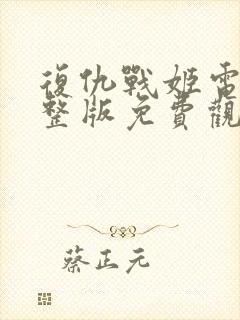 復仇戰姬電
整版免費觀
蔡正元